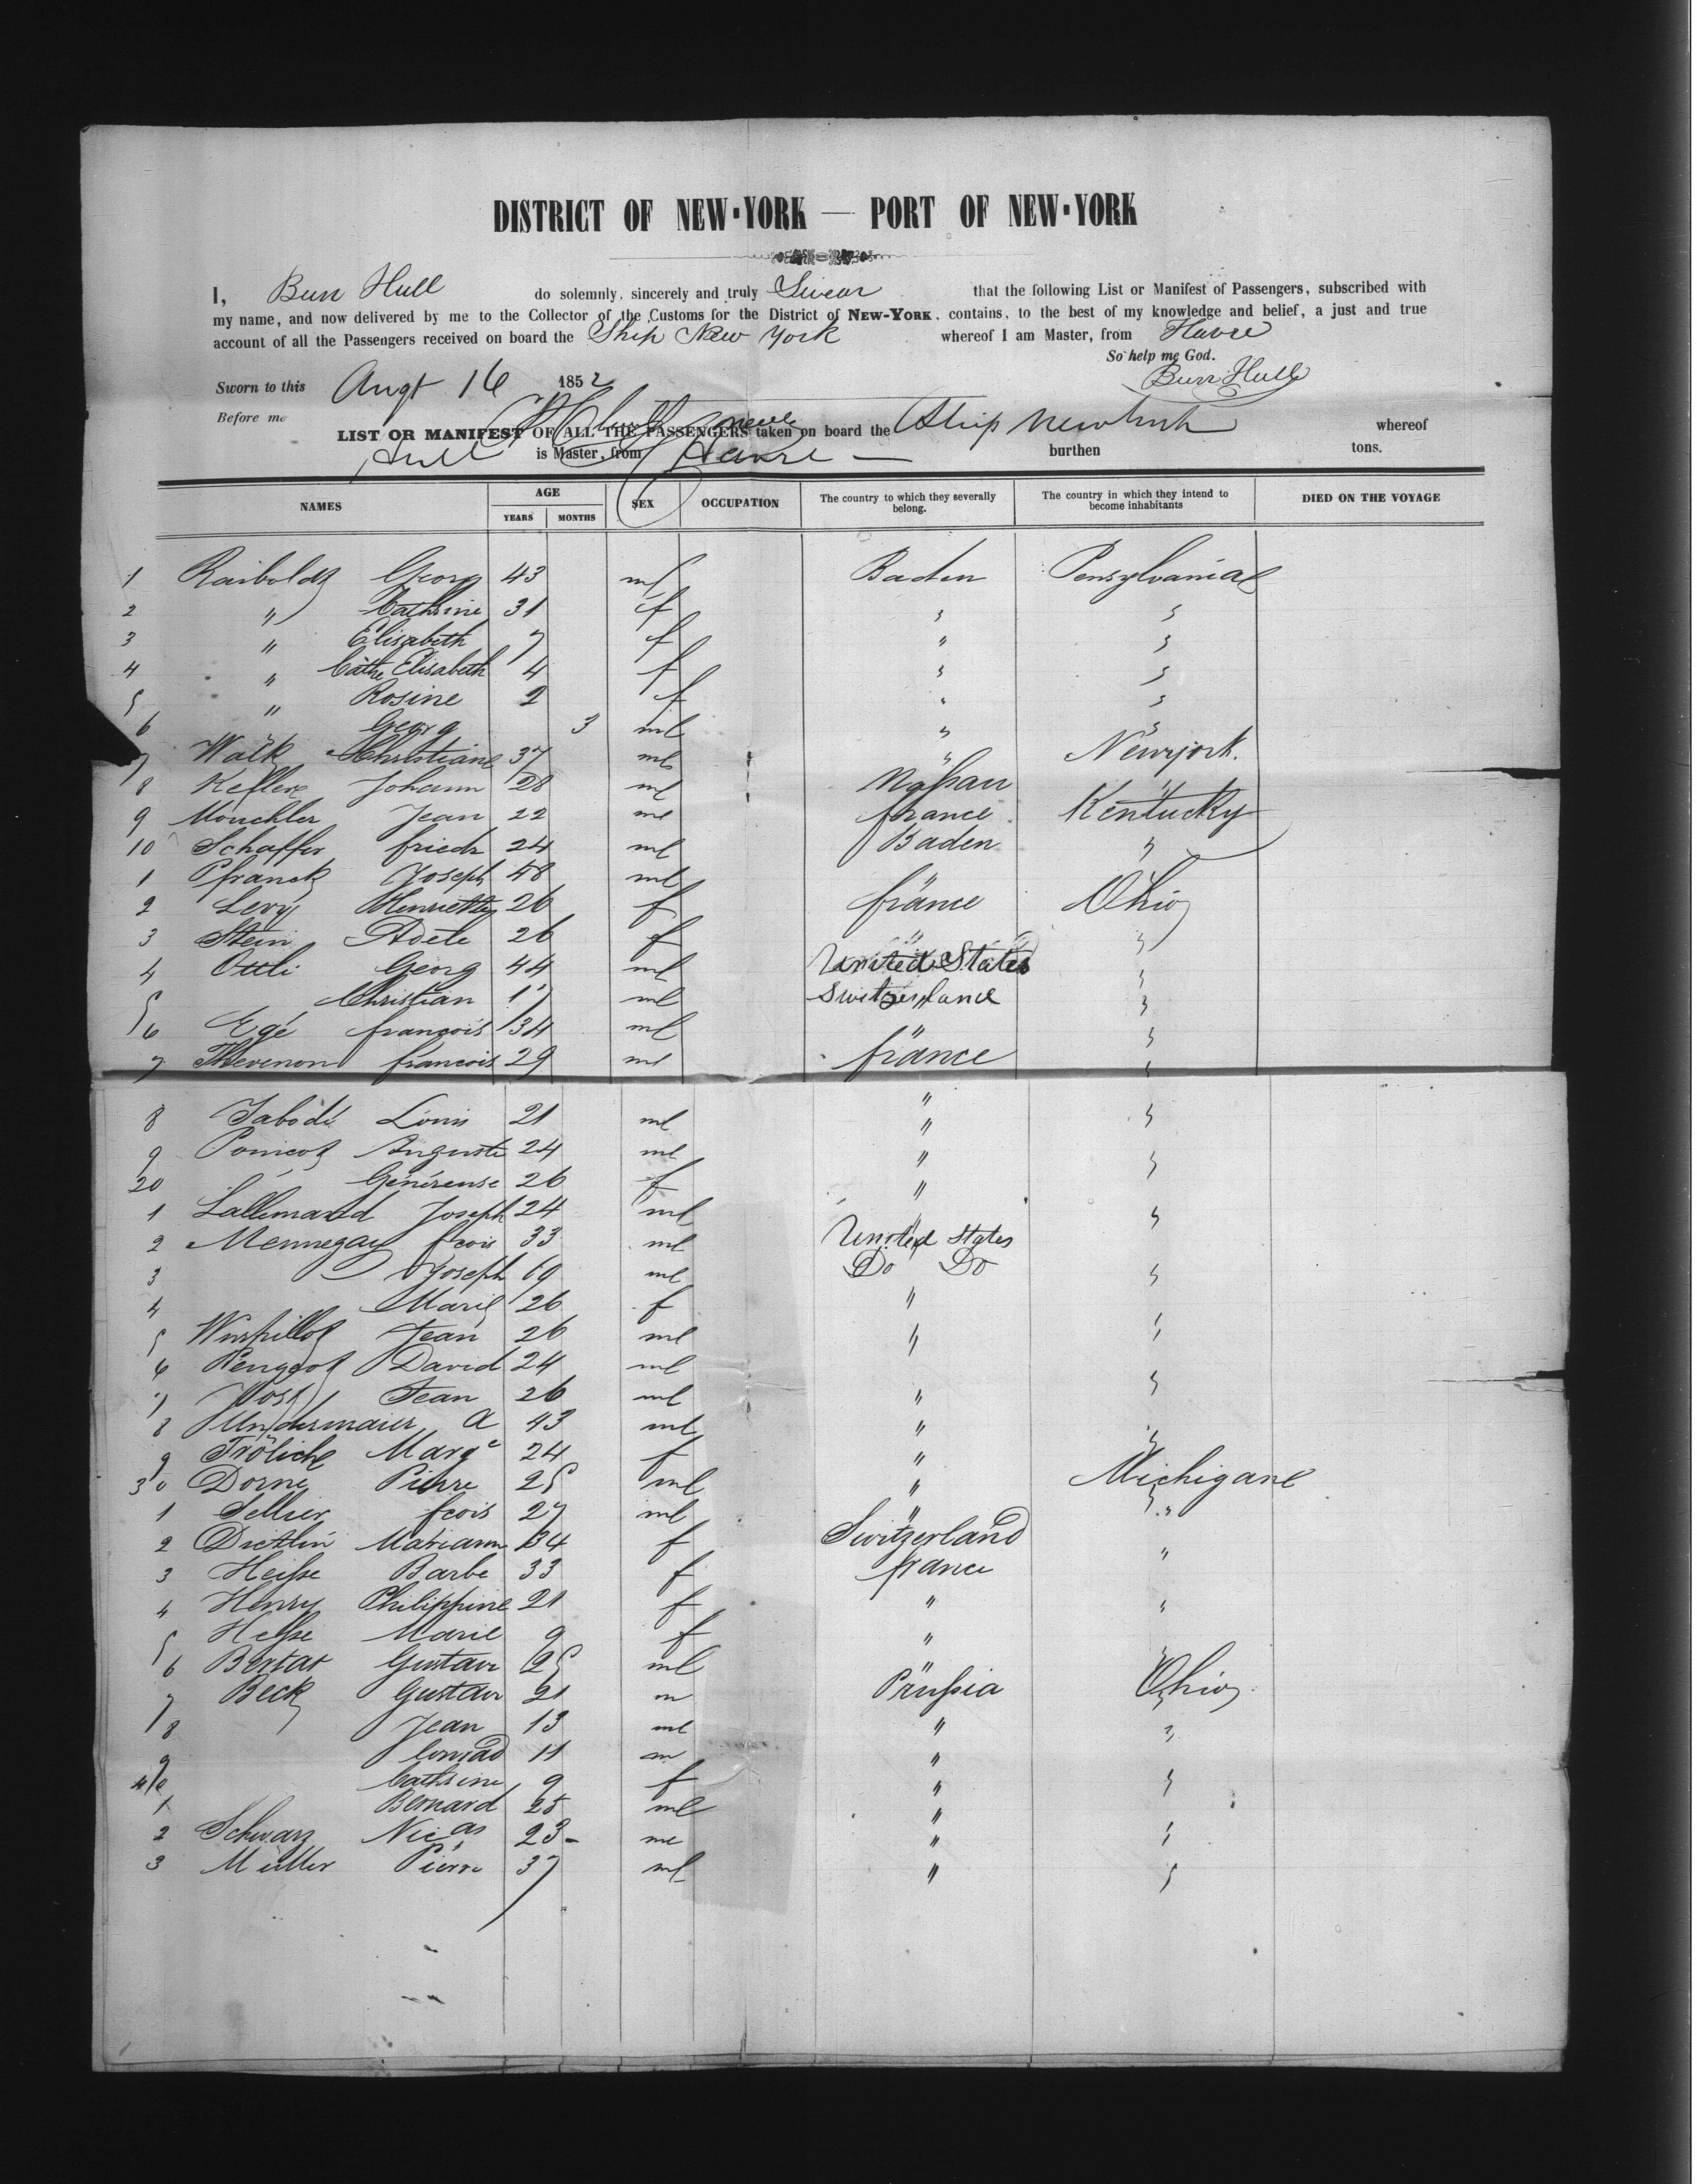 DISTRICT OF NEW-YORK — PORT OF NEW-YORK
I, Burr Hull do solemnly, sincerely and truly Swear that the following List or Manifest of Passengers, subscribed with
my name, and now delivered by me to the Collector of the Customs for the District of NEW-YORK, contains, to the best of my knowledge and belief, a just and true
account of all the Passengers received on board the Ship New York whereof I am Master, from Havre
So help me God.
Sworn to this Augt 16 1852 Burr Hull
Before me
LIST OR MANIFEST OF ALL THE PASSENGERS taken on board the Ship New York whereof
Hull is Master, from Havre — burthen tons.
NAMES AGE YEARS MONTHS SEX OCCUPATION The country to which they severally belong. The country in which they intend to become inhabitants DIED ON THE VOYAGE
1 Raiboldz Georg 43 ml Baden Pensylvania
2 " Cathrine 31 f " "
3 " Elisabeth 7 f " "
4 " Cathe Elisabeth 4 f " "
5 " Rosine 2 f " "
6 " Georg 3 ml " "
7 Walk Christiane 37 ml " Newyork.
8 Kesler Johann 28 ml Naßau "
9 Mouchler Jean 22 ml france Kentucky
10 Schaffer friedr 24 ml Baden "
1 Pfranck Joseph 48 ml "
2 Levy Henriette 26 f france Ohio
3 Stein Adele 26 f " "
4 Ottli Georg 44 ml United States "
5 Christian 17 ml Switzerland "
6 Egé françois 34 ml " "
7 Thevenon francois 29 ml france "
8 Louis 21 ml " "
9 Auguste 24 ml "
20 Génereuse 26 f " "
1 Lallemand Joseph 24 ml "
2 Mennegay fcois 33 ml United States "
3 Joseph 69 ml Do Do "
4 Marie 26 f "
5 Jean 26 ml " "
6 David 24 ml
7 Jost Jean 26 ml " "
8 A 43 ml " "
9 Fröliche Marge 24 f "
30 Dorne Pierre 25 ml " Michigane
1 Sellier fcois 27 ml " "
2 Dietlin Mariann 34 f Switzerland
3 Heiße Barbe 33 f france "
4 Henry Philippine 21 f " "
5 Heße Marie 9 f "
6 Gustave 25 ml " "
7 Beck Gustav 21 m Prußia Ohio
8 Jean 13 ml " "
9 Conrad 11 m "
40 Cathrine 9 f " "
1 Bernard 25 ml "
2 Schwarz Nicas 23 - ml " "
3 Müller Pierre 37 ml " "